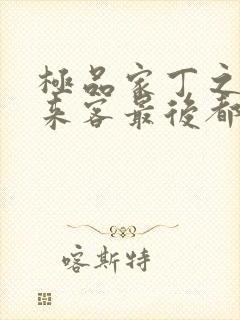 極品家丁之
來客最後都
喀斯特